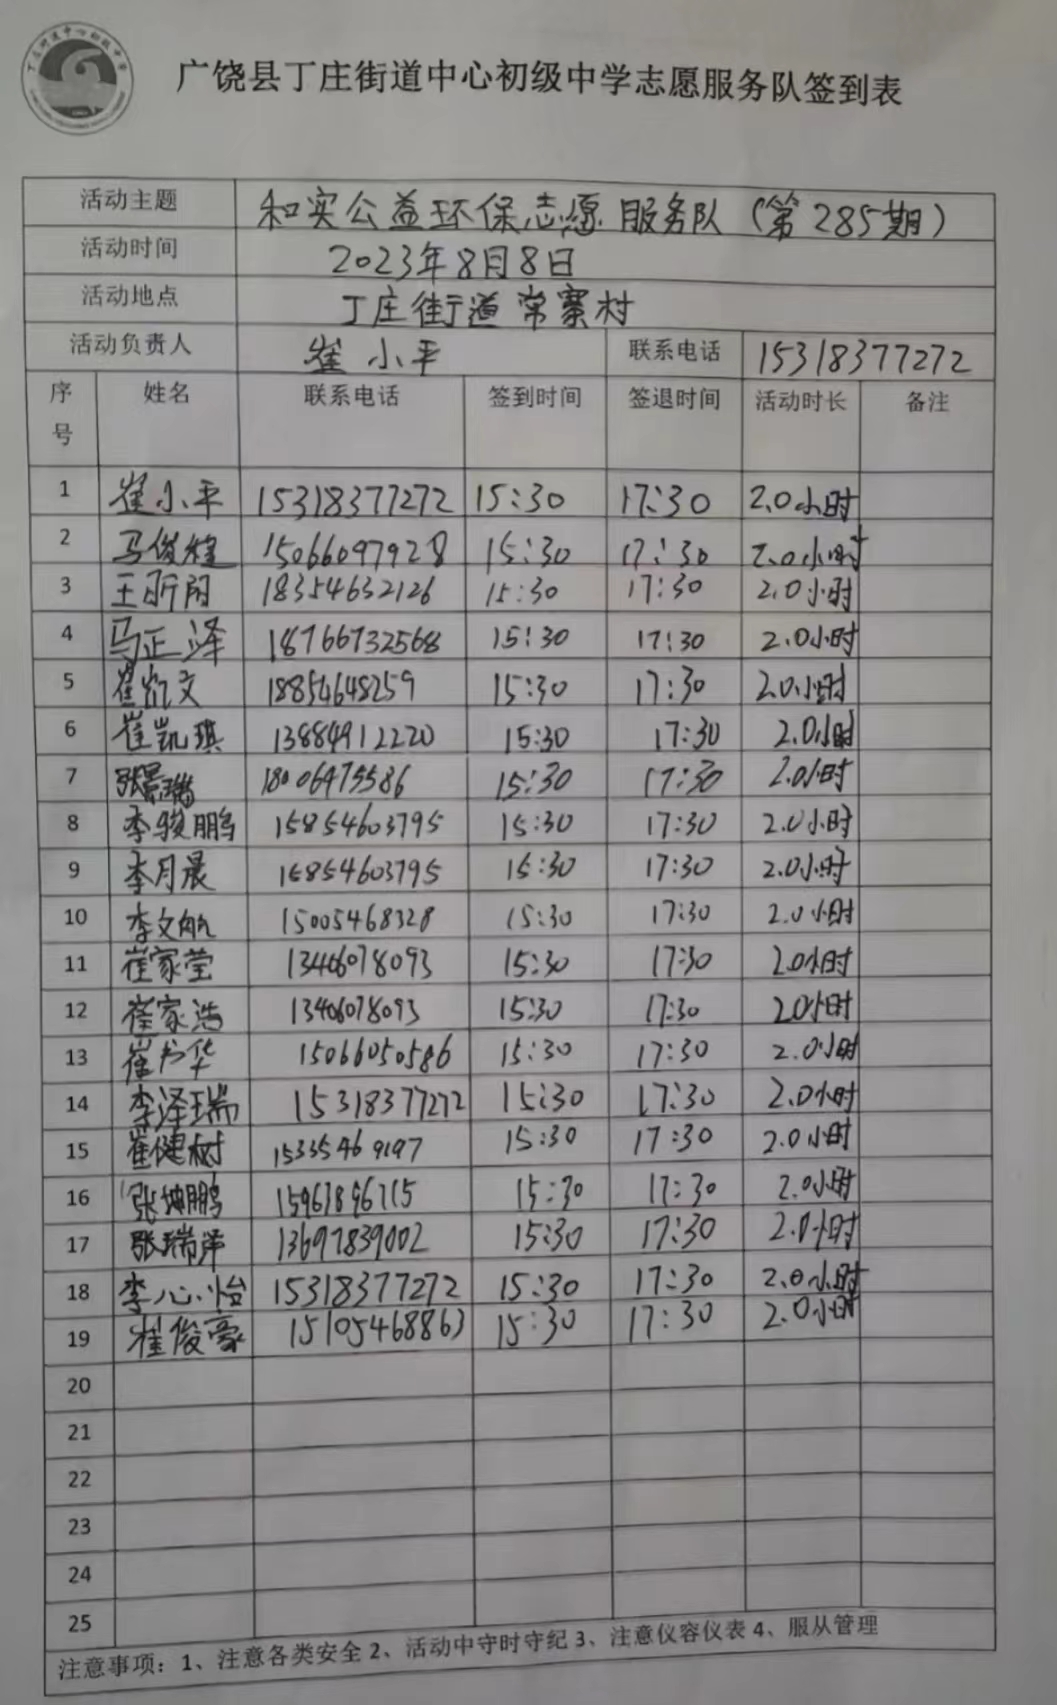 广饶县丁庄街道中心初级中学志愿服务队签到表
活动主题 和实公益环保志愿服务队（第285期）
活动时间 2023年8月8日
活动地点 丁庄街道常寨村
活动负责人 崔小平 联系电话 15318377272
序号 姓名 联系电话 签到时间 签退时间 活动时长 备注
1 崔小平 15318377272 15:30 17:30 2.0小时
2 马俊程 15066097928 15:30 17:30 2.0小时
3 王昕雨 18354632126 15:30 17:30 2.0小时
4 马正泽 18766732568 15:30 17:30 2.0小时
5 崔凯文 18854648259 15:30 17:30 2.0小时
6 崔凯琪 13884912220 15:30 17:30 2.0小时
7 张景瑞 18006475586 15:30 17:30 2.0小时
8 李骏鹏 15854603795 15:30 17:30 2.0小时
9 李月晨 15854603795 15:30 17:30 2.0小时
10 李文航 15005468328 15:30 17:30 2.0小时
11 崔家莹 13406078093 15:30 17:30 2.0小时
12 崔家浩 13406078093 15:30 17:30 2.0小时
13 崔书华 15066050586 15:30 17:30 2.0小时
14 李泽瑞 15318377272 15:30 17:30 2.0小时
15 崔健树 15335469197 15:30 17:30 2.0小时
16 张坤鹏 15961896715 15:30 17:30 2.0小时
17 张瑞洋 13697839002 15:30 17:30 2.0小时
18 李心怡 15318377272 15:30 17:30 2.0小时
19 崔俊豪 15105468863 15:30 17:30 2.0小时
20
21
22
23
24
25
注意事项：1、注意各类安全 2、活动中守时守纪 3、注意仪容仪表 4、服从管理